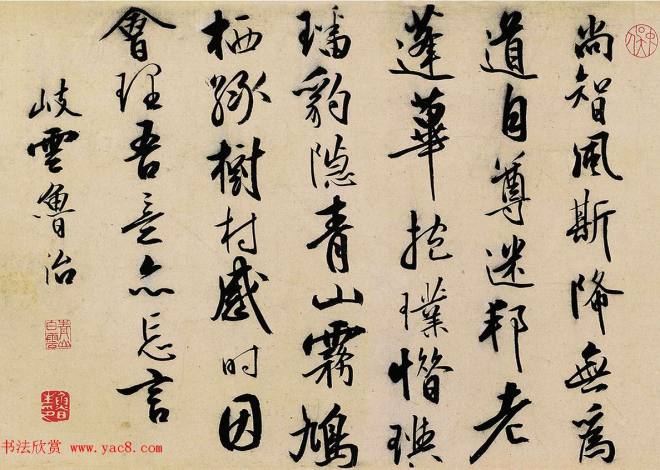 尚智風斯降無為
道自尊迷邦老
蓬蓽抱璞惜璵
璠豹隐青山霧鳩
栖綠樹村感時因
會理吾意亦忘言
岐雲魯治
书法欣赏 www.yac8.com